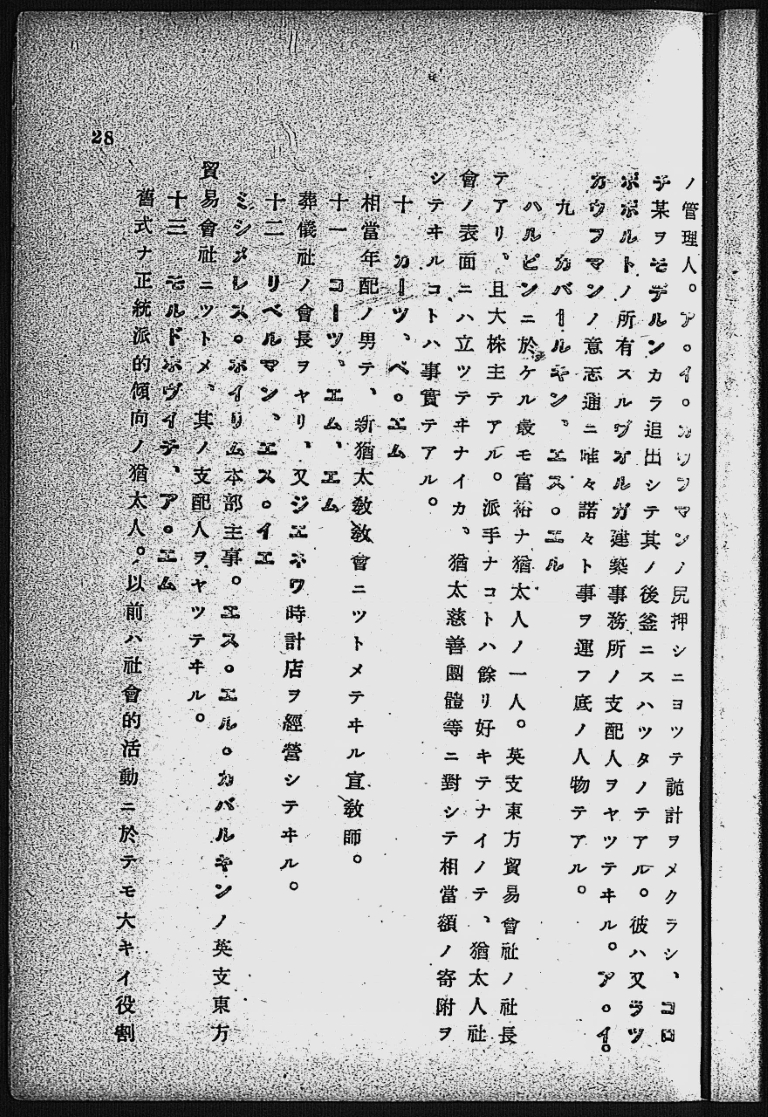 ノ管理人。ア。イ。カウフマンノ尻押シニヨツテ詭計ヲメクラシ、コロ
チ某ヲモデルンカラ追出シテ其ノ後釜ニスハツタノテアル。彼ハ又ラツ
ポポルトノ所有スルヴオルガ建築事務所ノ支配人ヲヤツテヰル。ア。イ。
カウフマンノ意志通ニ唯々諾々ト事ヲ運フ底ノ人物テアル。
九 カバールキン、エス。エル
ハルピンニ於ケル最モ富裕ナ猶太人ノ一人。英支東方貿易會社ノ社長
テアリ、且大株主テアル。派手ナコトハ餘リ好キテナイノテ、猶太人社
會ノ表面ニハ立ツテヰナイカ、猶太慈善團體等ニ對シテ相當額ノ寄附ヲ
シテヰルコトハ事實テアル。
十 カーツ、ベ。エム
相當年配ノ男テ、新猶太敎敎會ニツトメテヰル宣敎師。
十一 コーツ、エム、エム
葬儀社ノ會長ヲヤリ、又ジエネワ時計店ヲ經營シテヰル。
十二 リベルマン、エス。イエ
ミシメレス。ホイリム本部主事。エス。エル。カバルキンノ英支東方
貿易會社ニツトメ、其ノ支配人ヲヤツテヰル。
十三 モルドホヴイチ、ア。エム
舊式ナ正統派的傾向ノ猶太人。以前ハ社會的活動ニ於テモ大キイ役割
28